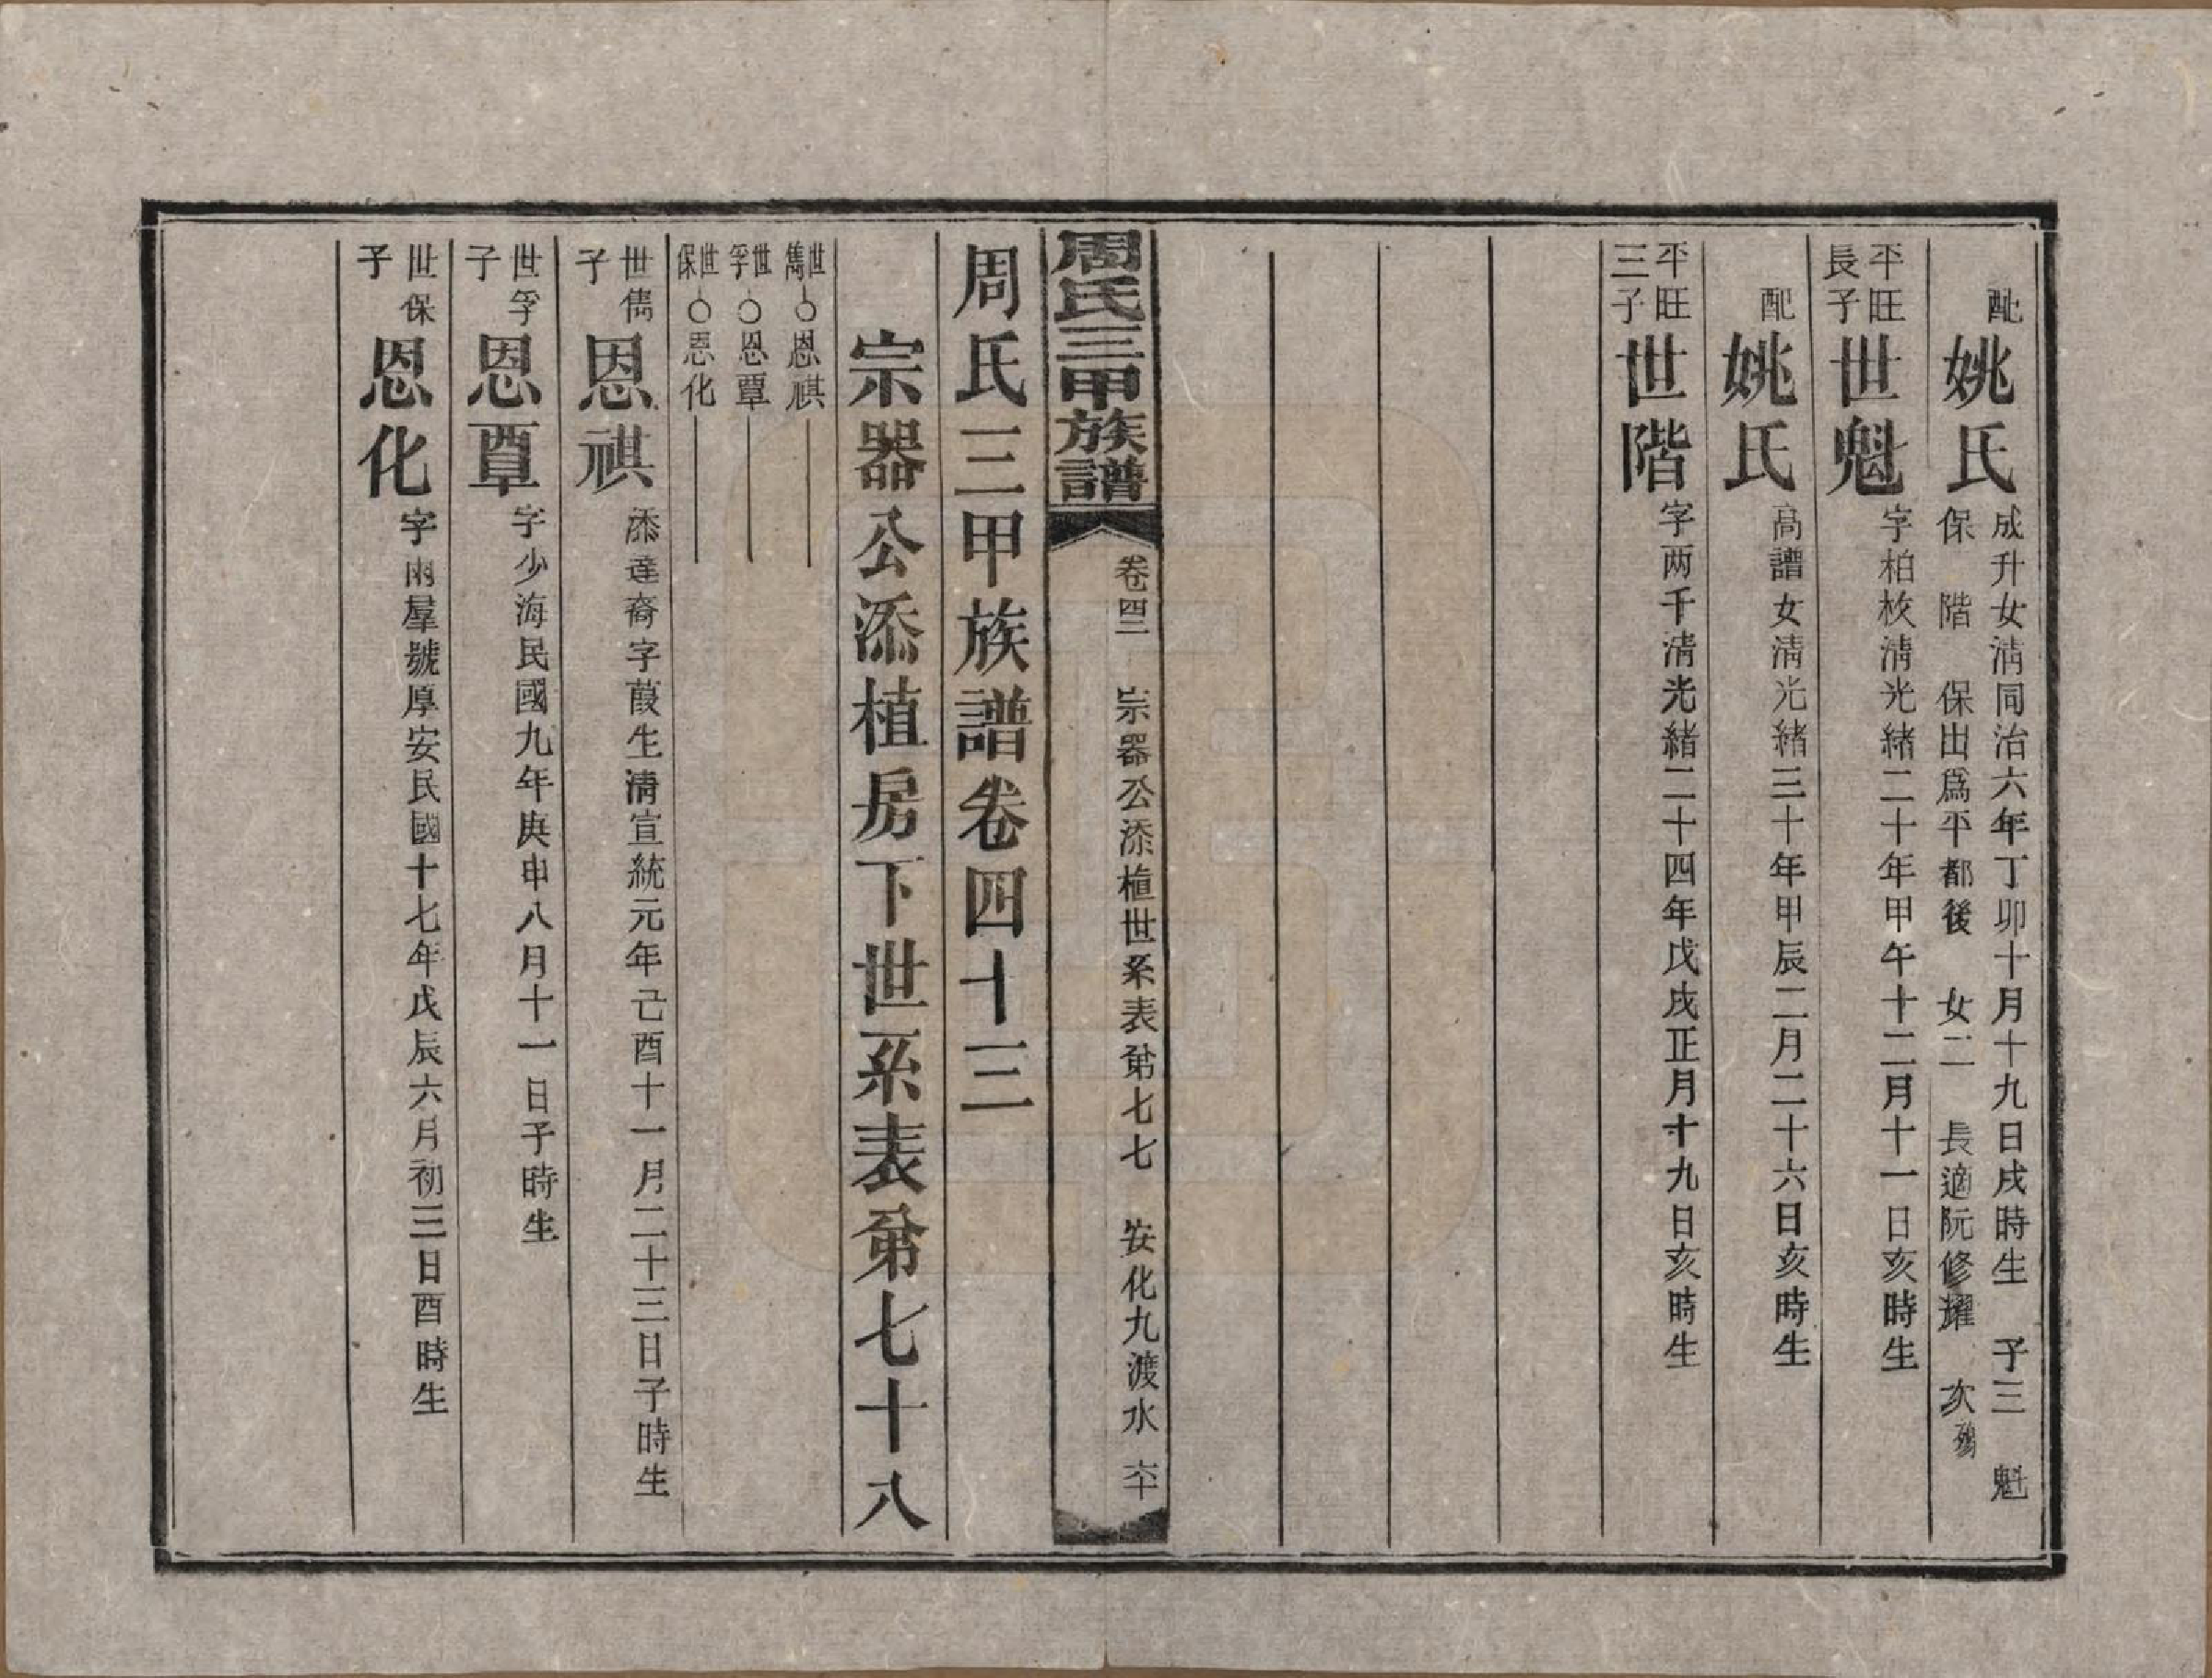 配姚氏成升女淸同治六年丁卯十月十九日戌時生 子三 魁
保 階 保出爲平都後 女二 長適阮修耀 次殤
平旺長子世魁字柏枚淸光緖二十年甲午十二月十一日亥時生
配姚氏高譜女淸光緖三十年甲辰二月二十六日亥時生
平旺三子世階字两千淸光緖二十四年戊戌正月十九日亥時生
周氏三甲族譜
卷四二 宗器公添植世系表第七七 安化九渡水 六十
周氏三甲族譜卷四十三
宗器公添植房下世系表第七十八
世雋○恩祺
世孚○恩覃
世保○恩化
世雋子恩祺添達裔字葭生淸宣統元年己酉十一月二十三日子時生
世孚子恩覃字少海民國九年庚申八月十一日子時生
世保子恩化字雨羣號厚安民國十七年戊辰六月初三日酉時生